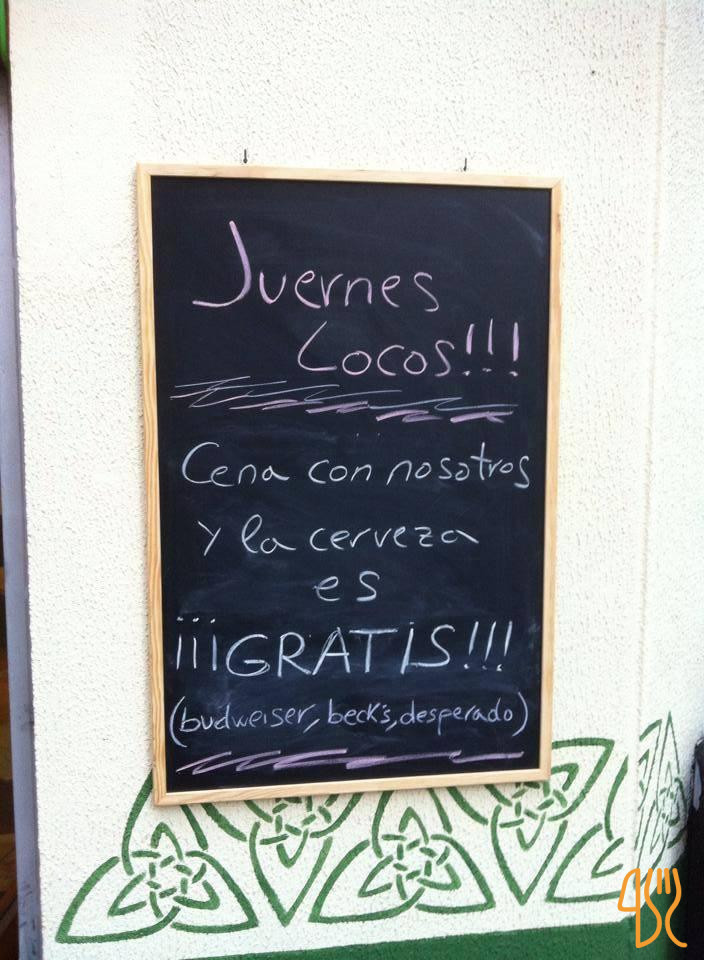 Juernes
Locos!!!
Cena con nosotros
y la cerveza
es
¡¡¡GRATIS!!!
(budweiser, beck's, desperado)